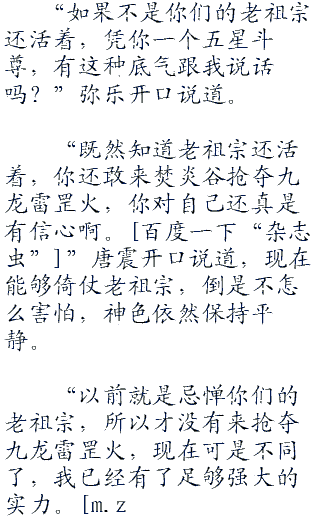 “如果不是你们的老祖宗
还活着，凭你一个五星斗
尊，有这种底气跟我说话
吗？”弥乐开口说道。
“既然知道老祖宗还活
着，你还敢来焚炎谷抢夺九
龙雷罡火，你对自己还真是
有信心啊。[百度一下“杂志
虫”]”唐震开口说道，现在
能够倚仗老祖宗，倒是不怎
么害怕，神色依然保持平
静。
“以前就是忌惮你们的
老祖宗，所以才没有来抢夺
九龙雷罡火，现在可是不同
了，我已经有了足够强大的
实力。[m.z